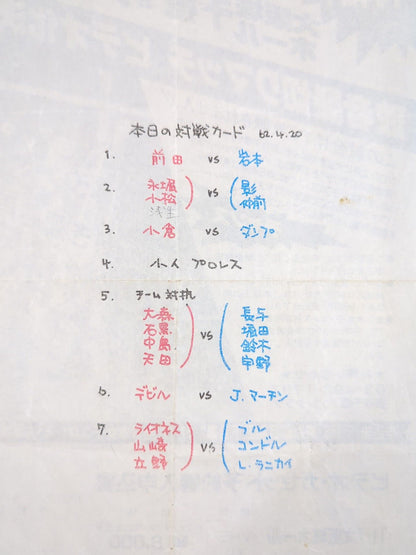 本日の対戦カード 62.4.20
1. 前田 vs 岩本
2. 永堀 小松 浅生 vs 影 仲前
3. 小倉 vs ダンプ
4. 小人プロレス
5. チーム対抗
大森 vs 長与
石黒 堀田
中島 鈴木
天田 宇野
6. デビル vs J.マーチン
7. ライオネス vs ブル
山崎 コンドル
立野 L.ラニカイ